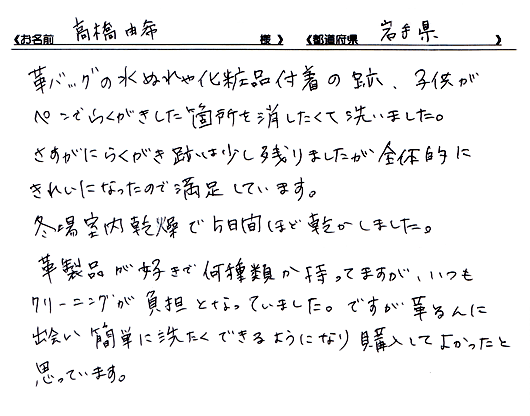 《お名前　高橋由希　様 》　《都道府県　岩手県　》
革バッグの水ぬれや化粧品付着の跡、子供が
ペンでらくがきした箇所を消したくて洗いました。
さすがにらくがき跡は少し残りましたが全体的に
きれいになったので満足しています。
冬場室内乾燥で5日間ほど乾かしました。
革製品が好きで何種類か持ってますが、いつも
クリーニングが負担となっていました。ですが革るんに
出会い簡単に洗たくできるようになり購入してよかったと
思っています。